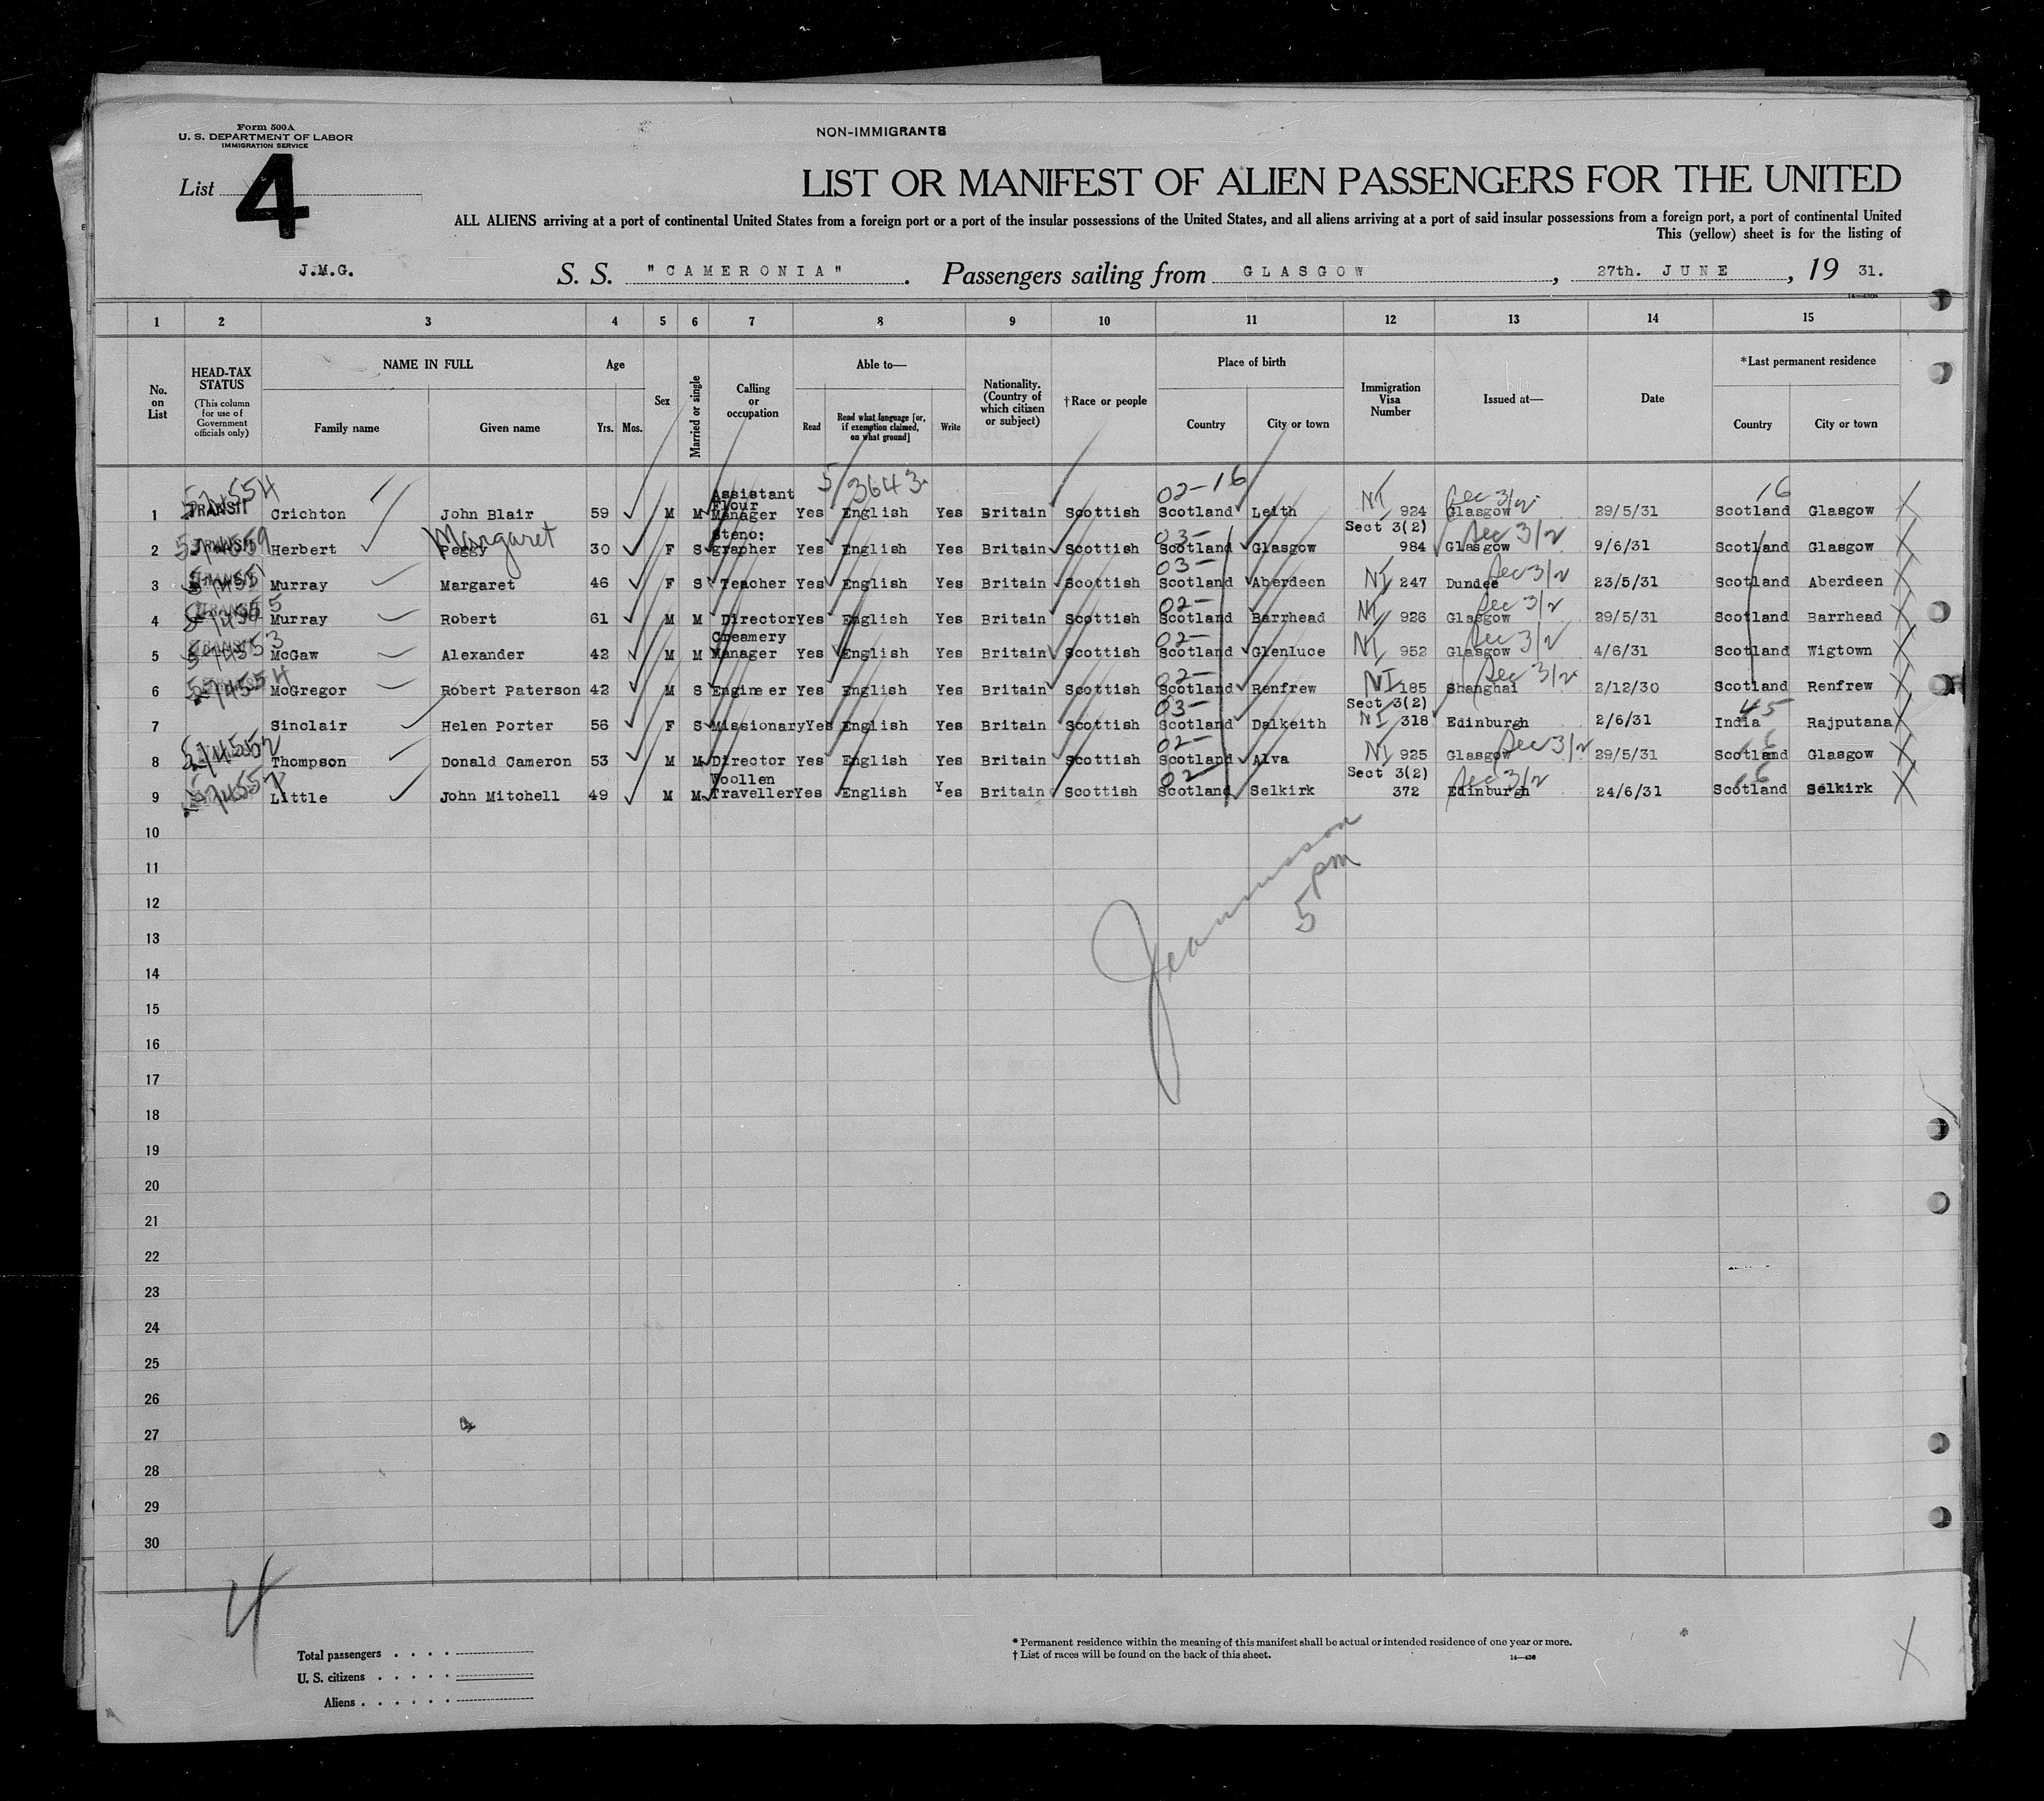 Form 500A
U. S. DEPARTMENT OF LABOR
IMMIGRATION SERVICE
NON-IMMIGRANTS
List 4
LIST OR MANIFEST OF ALIEN PASSENGERS FOR THE UNITED
ALL ALIENS arriving at a port of continental United States from a foreign port or a port of the insular possessions of the United States, and all aliens arriving at a port of said insular possessions from a foreign port, a port of continental United
This (yellow) sheet is for the listing of
J.M.G. S. S. "CAMERONIA". Passengers sailing from GLASGOW, 27th. JUNE, 19 31.
1 2 3 4 5 6 7 8 9 10 11 12 13 14 15
No. on List
HEAD-TAX STATUS (This column for use of Government officials only)
NAME IN FULL
Family name Given name
Age
Yrs. Mos.
Sex
Married or single
Calling or occupation
Able to—
Read Read what language [or, if exemption claimed, on what ground] Write
Nationality. (Country of which citizen or subject)
†Race or people
Place of birth
Country City or town
Immigration Visa Number
Issued at—
Date
*Last permanent residence
Country City or town
5/3643 02-16 16
1 TRANSIT Crichton John Blair 59 M M Assistant Flour Manager Yes English Yes Britain Scottish Scotland Leith NI 924 Glasgow Sec 3/2 29/5/31 Scotland Glasgow
2 Herbert Peggy Margaret 30 F S Steno: grapher Yes English Yes Britain Scottish 03- Scotland Glasgow Sect 3(2) 984 Glasgow Sec 3/2 9/6/31 Scotland Glasgow
3 Murray Margaret 46 F S Teacher Yes English Yes Britain Scottish 03- Scotland Aberdeen NI 247 Dundee Sec 3/2 23/5/31 Scotland Aberdeen
4 Murray Robert 61 M M Director Yes English Yes Britain Scottish 02- Scotland Barrhead NI 926 Glasgow Sec 3/2 29/5/31 Scotland Barrhead
5 McGaw Alexander 42 M M Creamery Manager Yes English Yes Britain Scottish 02- Scotland Glenluce NI 952 Glasgow Sec 3/2 4/6/31 Scotland Wigtown
6 McGregor Robert Paterson 42 M S Engineer Yes English Yes Britain Scottish 02- Scotland Renfrew NI 185 Shanghai Sec 3/2 2/12/30 Scotland Renfrew
7 Sinclair Helen Porter 56 F S Missionary Yes English Yes Britain Scottish 03- Scotland Dalkeith Sect 3(2) NI 318 Edinburgh 2/6/31 India 45 Rajputana
8 Thompson Donald Cameron 53 M M Director Yes English Yes Britain Scottish 02- Scotland Alva NI 925 Glasgow Sec 3/2 29/5/31 Scotland Glasgow
9 Little John Mitchell 49 M M Woollen Traveller Yes English Yes Britain Scottish 02- Scotland Selkirk Sect 3(2) 372 Edinburgh Sec 3/2 24/6/31 Scotland Selkirk
10
11
5 pm
12
13
14
15
16
17
18
19
20
21
22
23
24
25
26
27
28
29
30
4
Total passengers
U. S. citizens
Aliens
* Permanent residence within the meaning of this manifest shall be actual or intended residence of one year or more.
† List of races will be found on the back of this sheet.
14—430
X